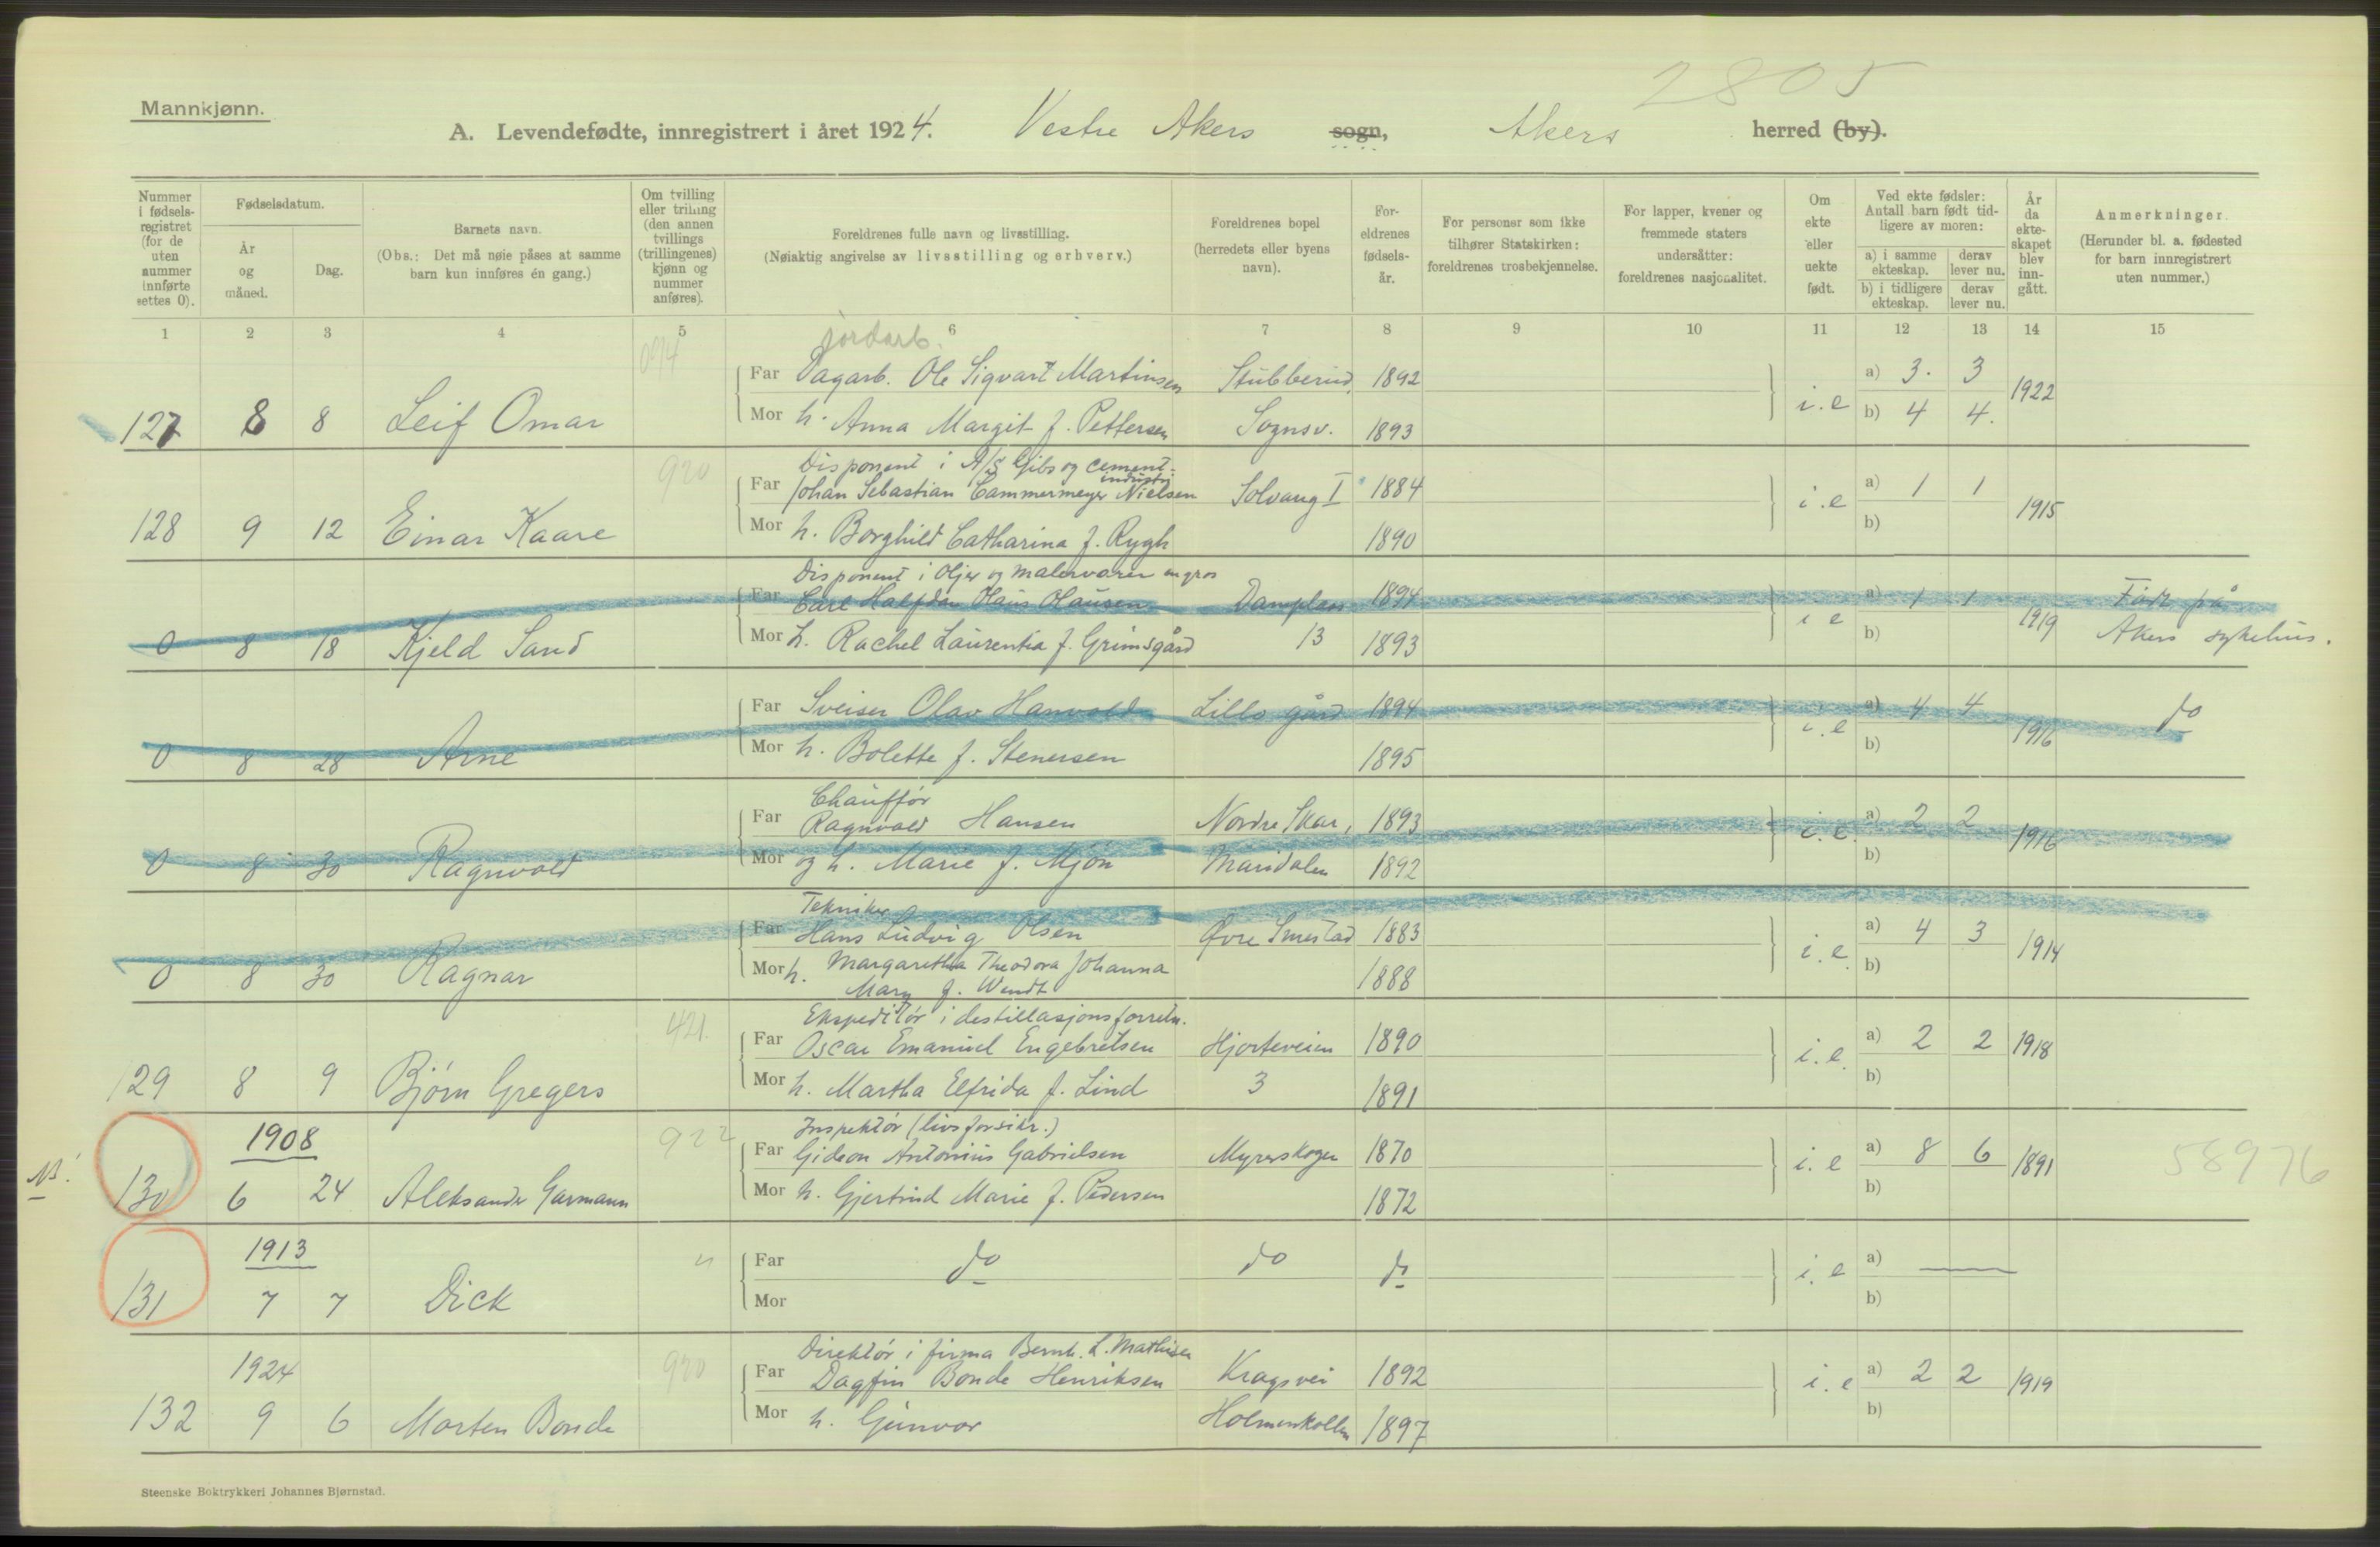 2805
Mannkjønn.
A. Levendefødte, innregistrert i året 1924. Vestre Akers sogn, Akers herred (by).
Nummer i fødsels-registret (for de uten nummer innførte settes 0).
Fødselsdatum.
År og måned.
Dag.
Barnets navn.
(Obs.: Det må nøie påses at samme barn kun innføres én gang.)
Om tvilling eller trilling (den annen tvillings (trillingenes) kjønn og nummer anføres).
Foreldrenes fulle navn og livsstilling.
(Nøiaktig angivelse av livsstilling og erhverv.)
Foreldrenes bopel (herredets eller byens navn).
For-eldrenes fødsels-år.
For personer som ikke tilhører Statskirken: foreldrenes trosbekjennelse.
For lapper, kvener og fremmede staters undersåtter: foreldrenes nasjonalitet.
Om ekte eller uekte født.
Ved ekte fødsler: Antall barn født tid-ligere av moren:
a) i samme ekteskap. derav lever nu.
b) i tidligere ekteskap. derav lever nu.
År da ekte-skapet blev inn-gått.
Anmerkninger.
(Herunder bl. a. fødested for barn innregistrert uten nummer.)
1 2 3 4 5 6 7 8 9 10 11 12 13 14 15
jordarb.
Far Dagarb. Ole Sigvart Martinsen Stubberud, 1892 a) 3. 3
127 8 8 Leif Omar Mor h. Anna Margit f. Pettersen Sognsv. 1893 i.e b) 4 4. 1922
920 Disponent i A/S Gibs og cement-industri
Far Johan Sebastian Cammermeyer Nielsen Solvang I 1884 a) 1 1
128 9 12 Einar Kaare Mor h. Borghild Catharina f. Rygh 1890 i.e b) 1915
Disponent i Oljer og malervarer engros
Far Carl Halfdan Hans Hansen Damplass 1894 a) 1 1 Født på
0 8 18 Kjeld Sand Mor h. Rachel Laurentia f. Grimsgård 13 1893 i e b) 1919 Akers sykehus.
Far Sveiser Olav Hanvold Lillo gård 1894 a) 4 4 do
0 8 28 Arne Mor h. Bolette f. Stenersen 1895 i.e b) 1916
Chauffør
Far Ragnvald Hansen Nordre Skar, 1893 a) 2 2
0 8 30 Ragnvald Mor og h. Marie f. Mjøn Maridalen 1892 i.e. b) 1916
Tekniker
Far Hans Ludvig Olsen Øvre Smestad 1883 a) 4 3
0 8 30 Ragnar Mor h. Margaretha Theodora Johanna 1888 i.e. b) 1914
Mary f. Wendt
421. Ekspeditør i destillasjonsforretn.
Far Oscar Emanuel Engebretsen Hjorteveien 1890 a) 2 2 1918
129 8 9 Bjørn Gregers Mor h. Martha Elfrida f. Lind 3 1891 i.e. b)
1908 922 Inspektør (livsforsikr.)
Far Gideon Antonius Gabrielsen Myrerskogen 1870 a) 8 6 1891 58976
NB! 130 6 24 Aleksander Garmann Mor h. Gjertrud Marie f. Pedersen 1872 i.e b)
1913 " Far do do do i.e a) —
131 7 7 Dick Mor b)
1924 920 Direktør i firma Bernh. L. Mathisen
Far Dagfin Bonde Henriksen Kragsvei 1892 a) 2 2 1919
132 9 6 Morten Bonde Mor h. Gunvor Holmenkollen 1897 i.e b)
Steenske Boktrykkeri Johannes Bjørnstad.